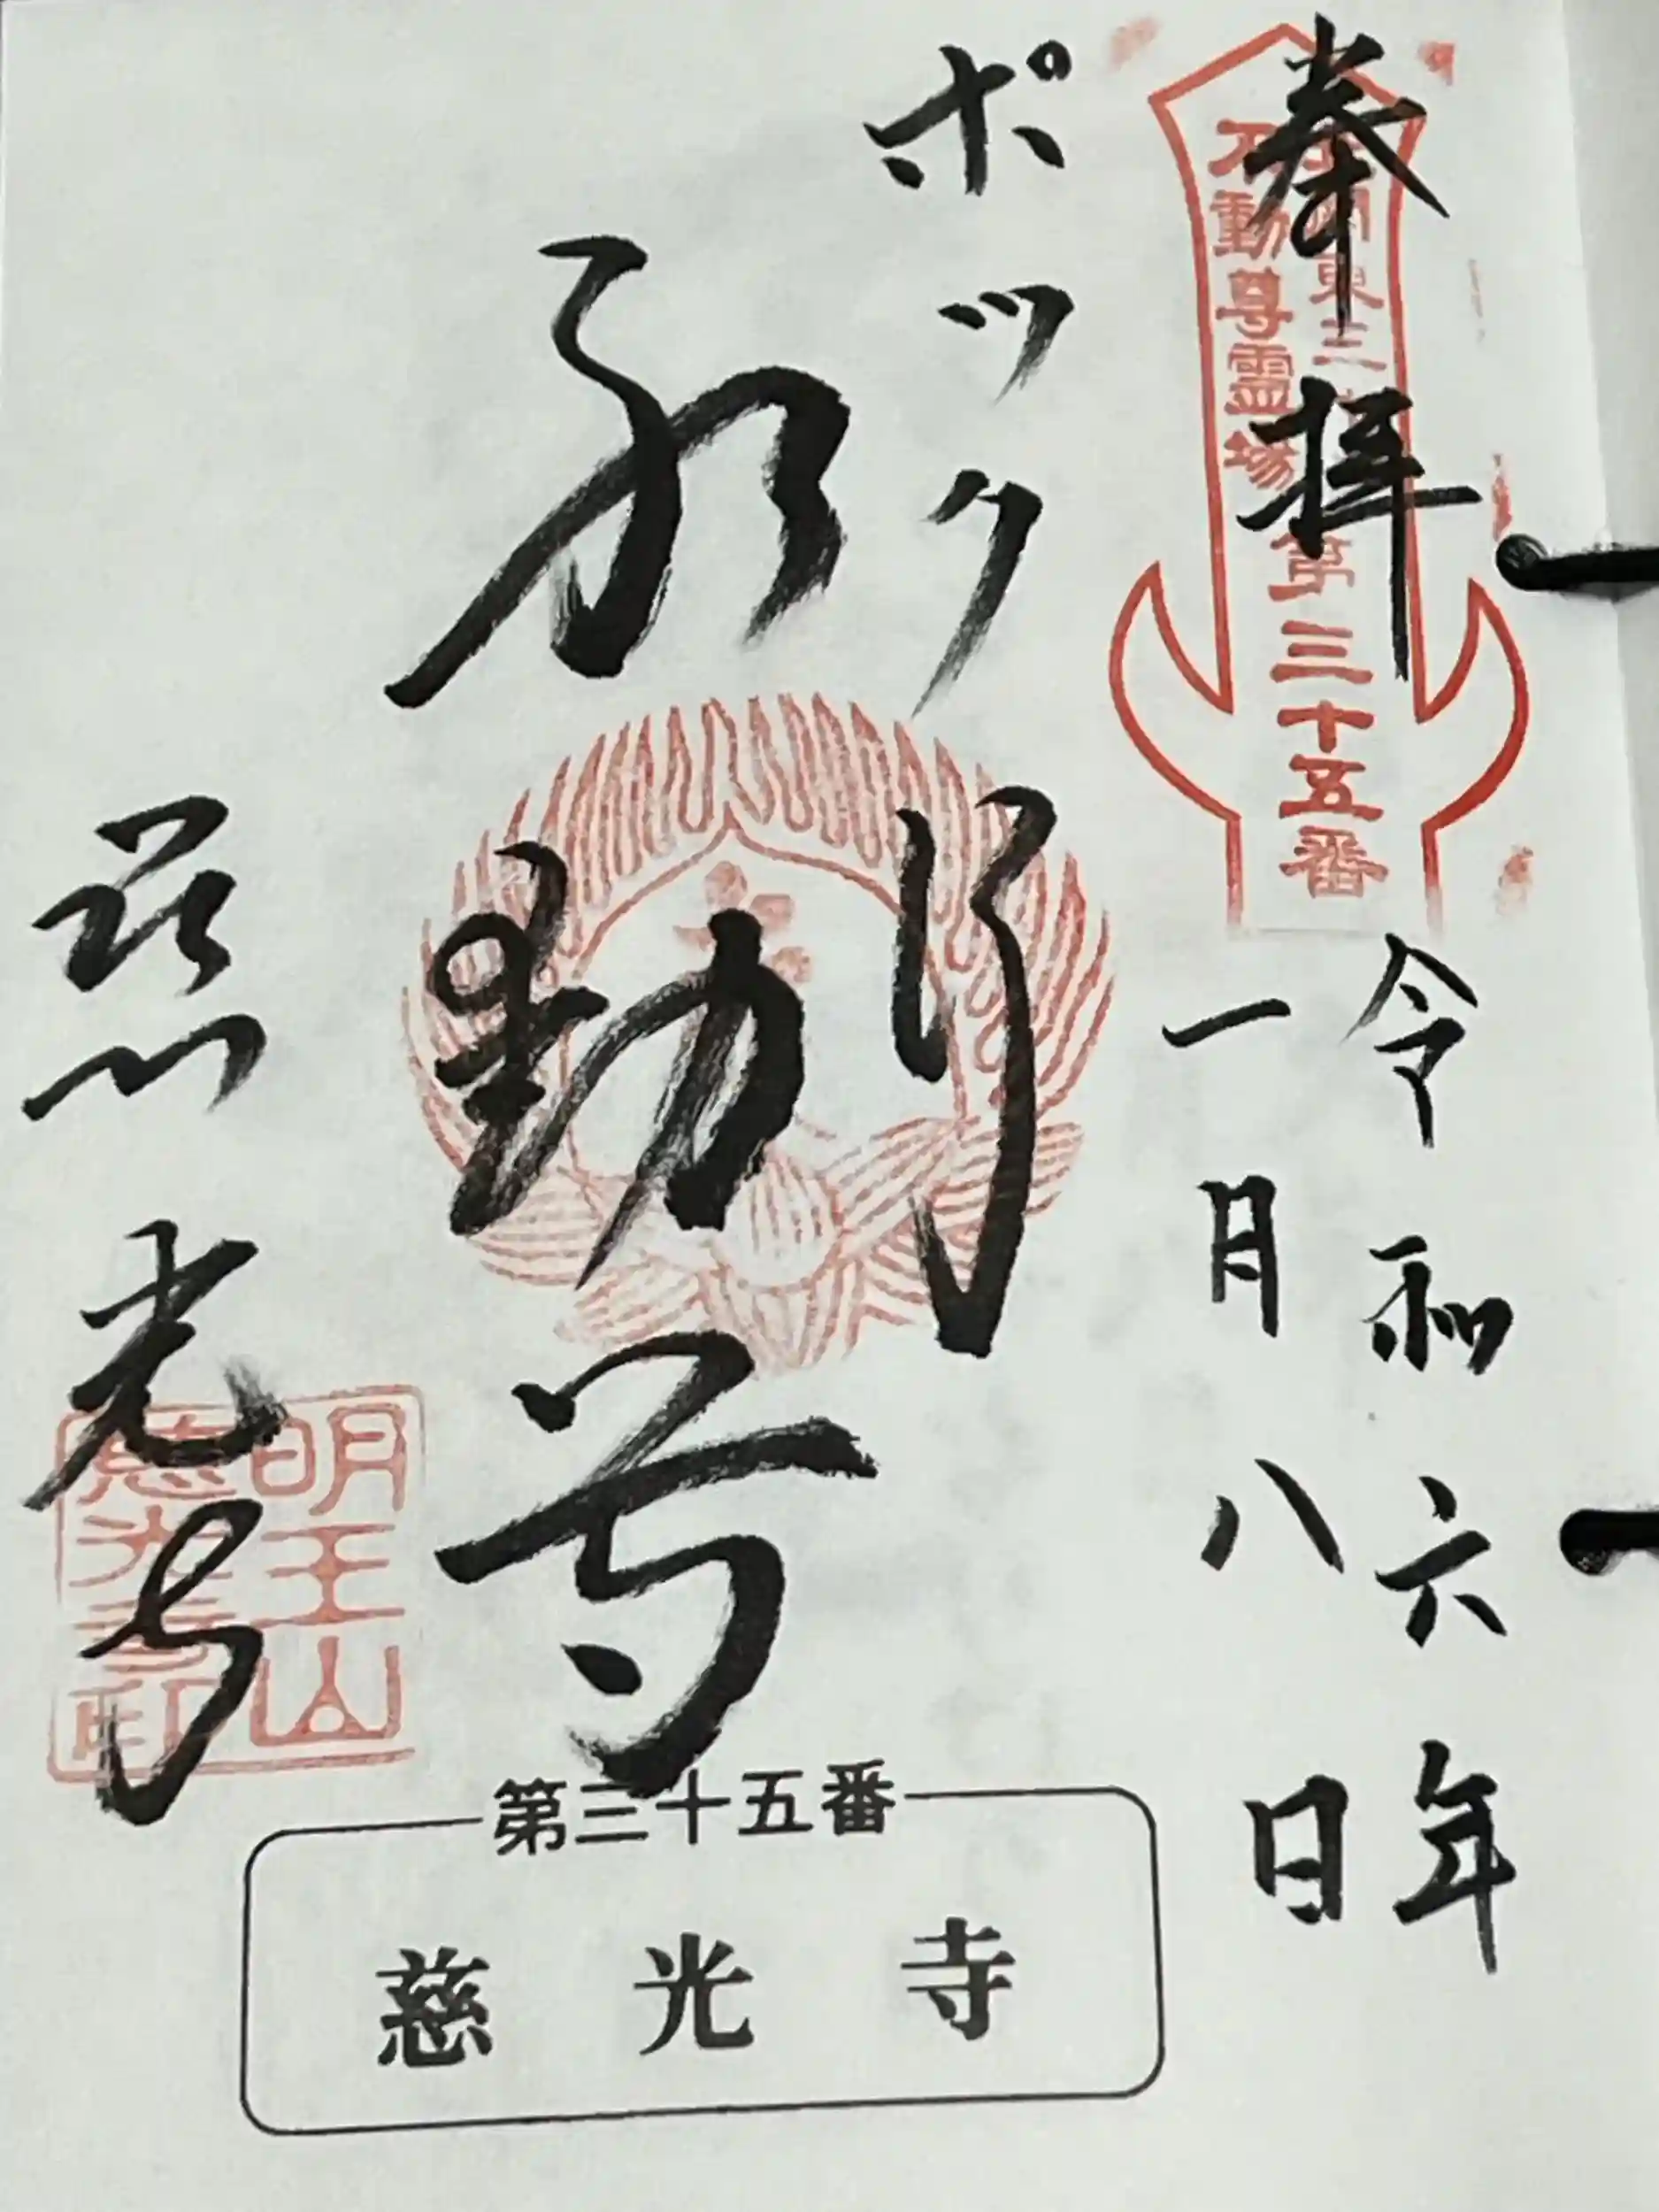 奉拝
北関東三十六
不動尊霊場
第三十五番
令和六年
一月八日
ポックリ
不動尊
慈光寺
明王山
慈光寺印
第三十五番
慈光寺